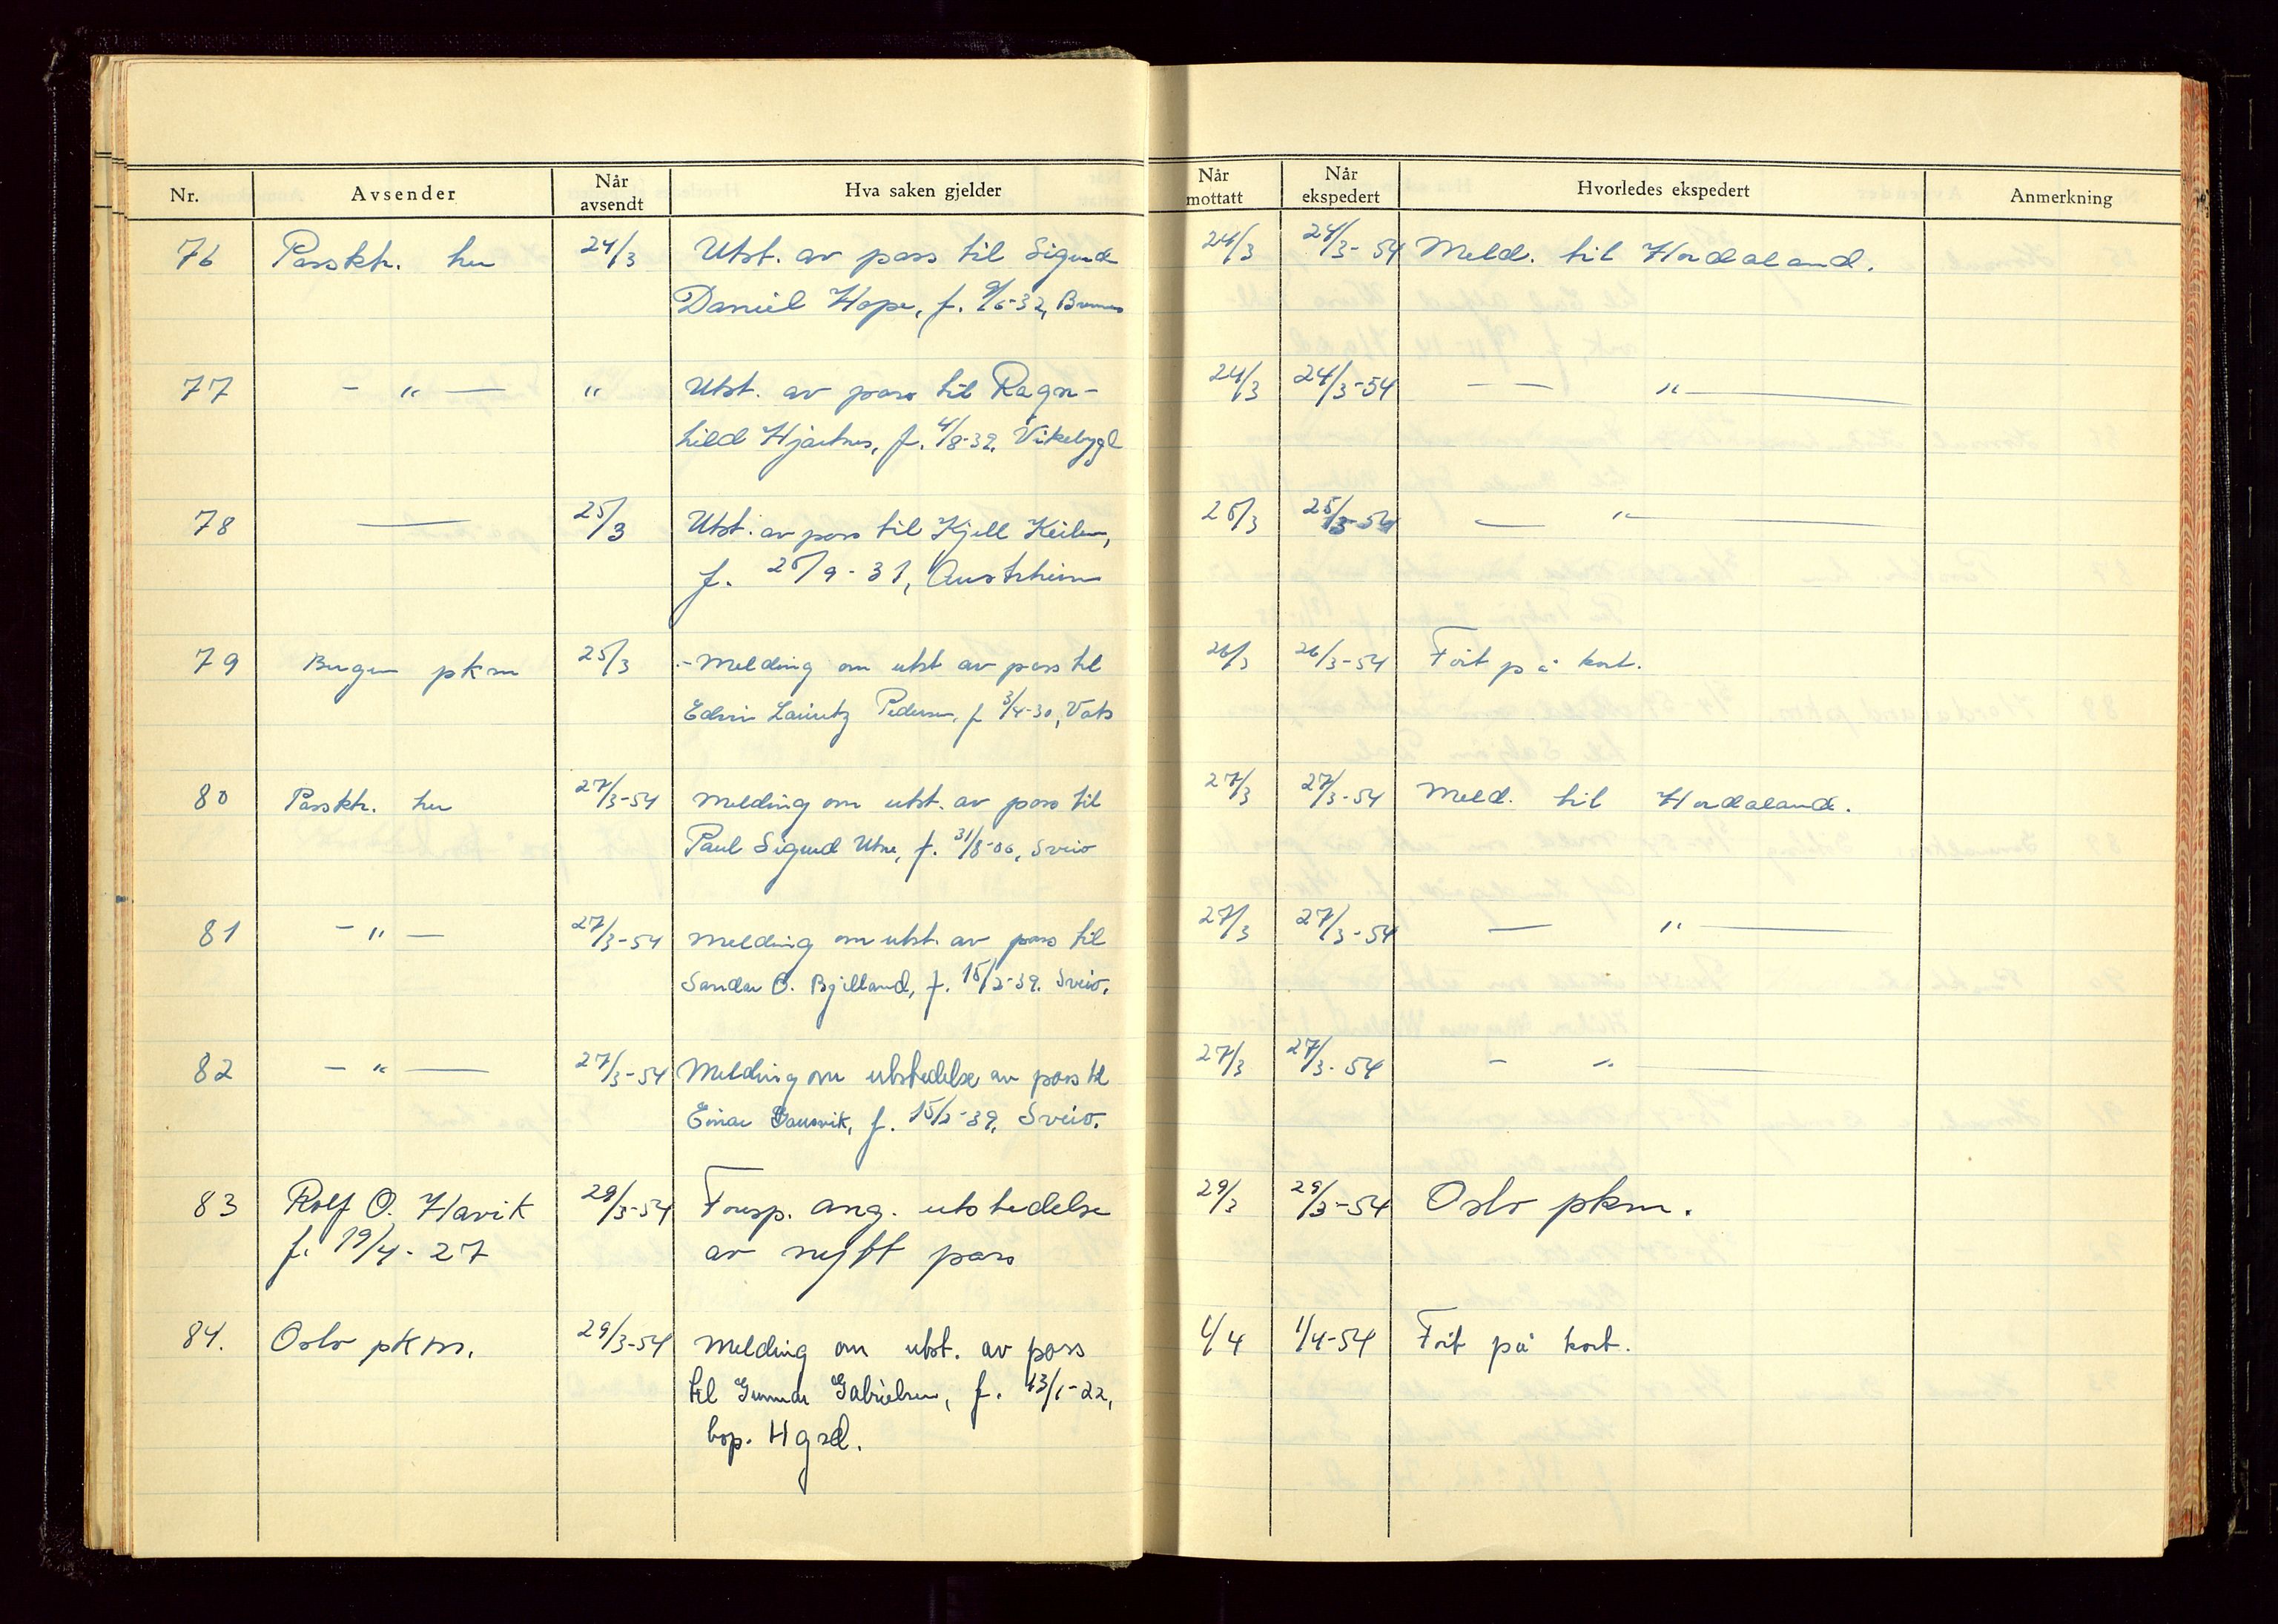 Nr. Avsender Når avsendt Hva saken gjelder Når mottatt Når ekspedert Hvorledes ekspedert Anmerkning
76 Passktr. her 24/3 Utst. av pass til Sigurd 24/3 24/3-54 Meld. til Hordaland.
Daniel Hope, f. 9/6-32, Bremnes
77 - " - " Utst. av pass til Ragn- 24/3 24/3-54 - " -
hild Hjartnes, f. 4/8-32, Vikebygd
78 - 25/3 Utst. av pass til Kjell 25/3 25/3-54 - " -
f. 25/9-31, Austrheim
79 Bergen pkm 25/3 - Melding om utst av pass til 26/3 26/3-54 Ført på kort.
Edvin Lauritz Pedersen, f 3/4-30, Vats
80 Passktr. her 27/3-54 Melding om utst. av pass til 27/3 27/3-54 Meld. til Hordaland.
Paul Sigurd Utne, f. 31/8-06, Sveio
81 - " - 27/3-54 Melding om utst. av pass til 27/3 27/3-54 - " -
Sandar O. Bjelland, f. 15/2-39. Sveio.
82 - " - 27/3-54 Melding om utstedelse av pass til 27/3 27/3-54 - " -
Einar f. 15/2-39, Sveio.
83 Rolf O. Havik 29/3-54 Foresp. ang. utstedelse 29/3 29/3-54 Oslo pkm.
f. 19/4-27 av nytt pass
84. Oslo pkm. 29/3-54 Melding om utst. av pass 1/4 1/4-54 Ført på kort.
til Gunnar Gabrielsen, f. 13/1-22,
bop. Hgsd.